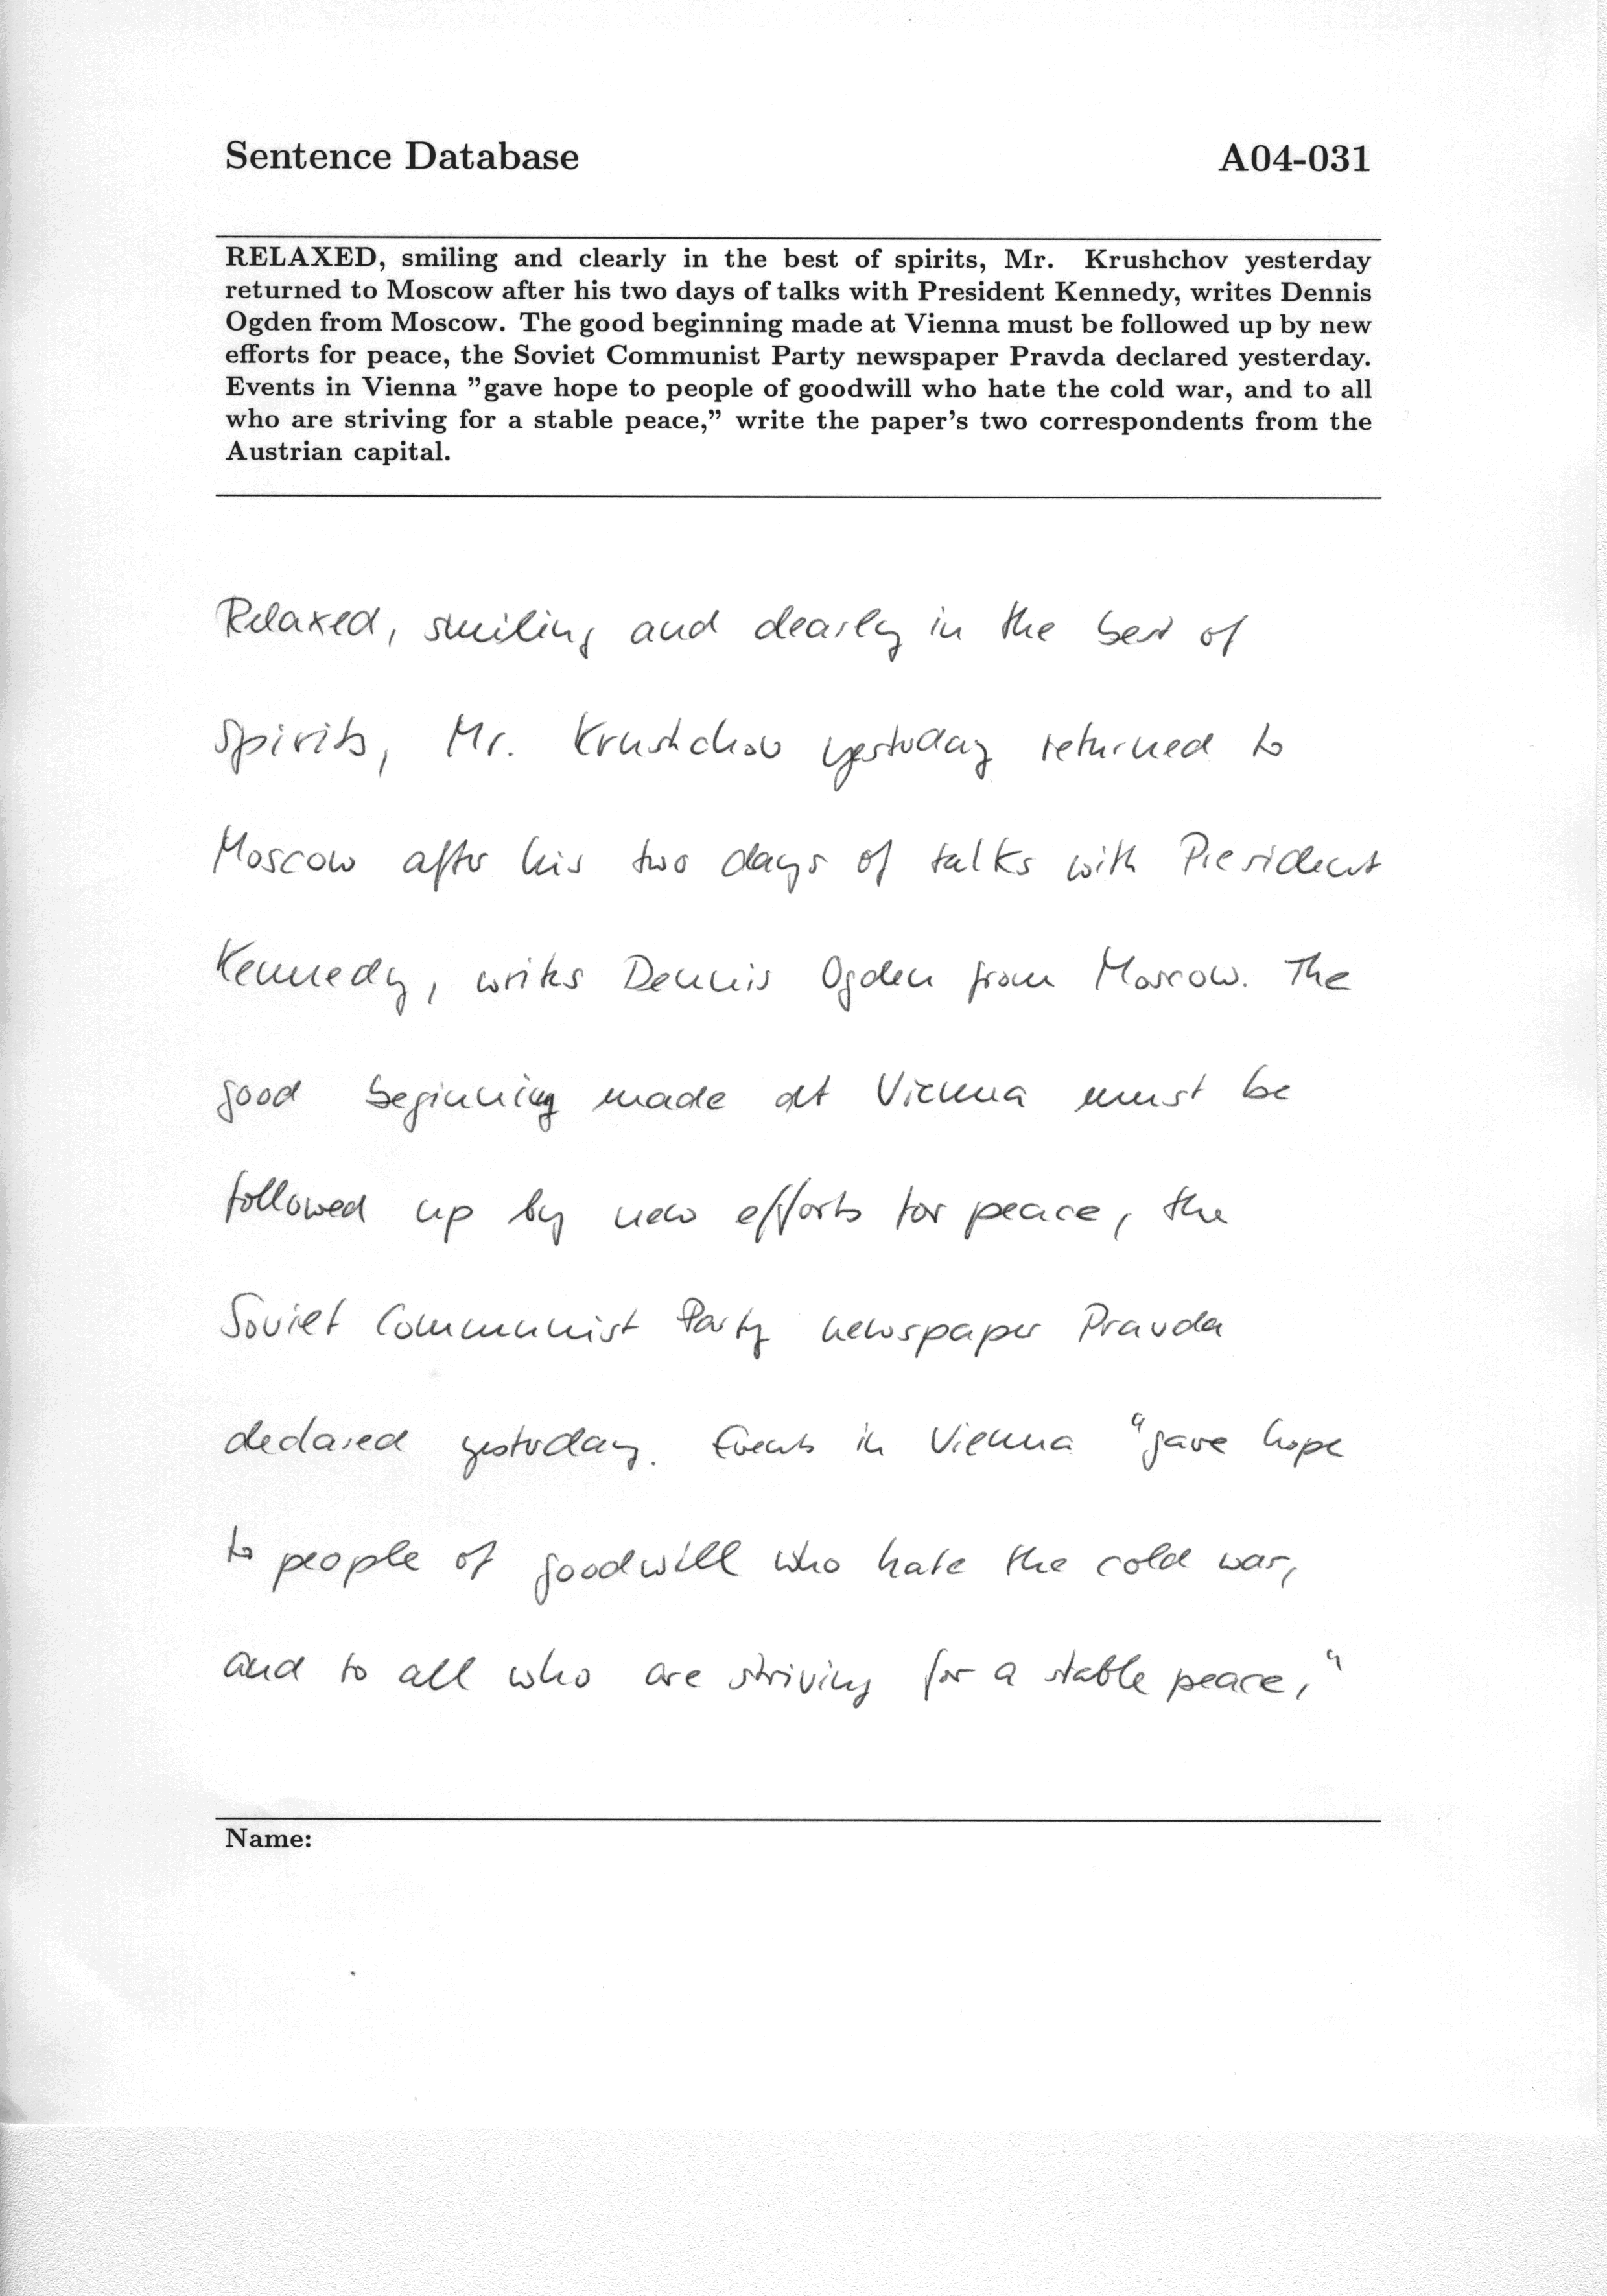 Sentence Database A04-031
RELAXED, smiling and clearly in the best of spirits, Mr. Krushchov yesterday
returned to Moscow after his two days of talks with President Kennedy, writes Dennis
Ogden from Moscow. The good beginning made at Vienna must be followed up by new
efforts for peace, the Soviet Communist Party newspaper Pravda declared yesterday.
Events in Vienna ”gave hope to people of goodwill who hate the cold war, and to all
who are striving for a stable peace,” write the paper's two correspondents from the
Austrian capital.
Relaxed, smiling and clearly in the best of
spirits, Mr. Krushchov yesterday returned to
Moscow after his two days of talks with President
Kennedy, writes Dennis Ogden from Moscow. The
good beginning made at Vienna must be
followed up by new efforts for peace, the
Soviet Communist Party newspaper Pravda
declared yesterday. Events in Vienna “gave hope
to people of goodwill who hate the cold war,
and to all who are striving for a stable peace,“
Name: